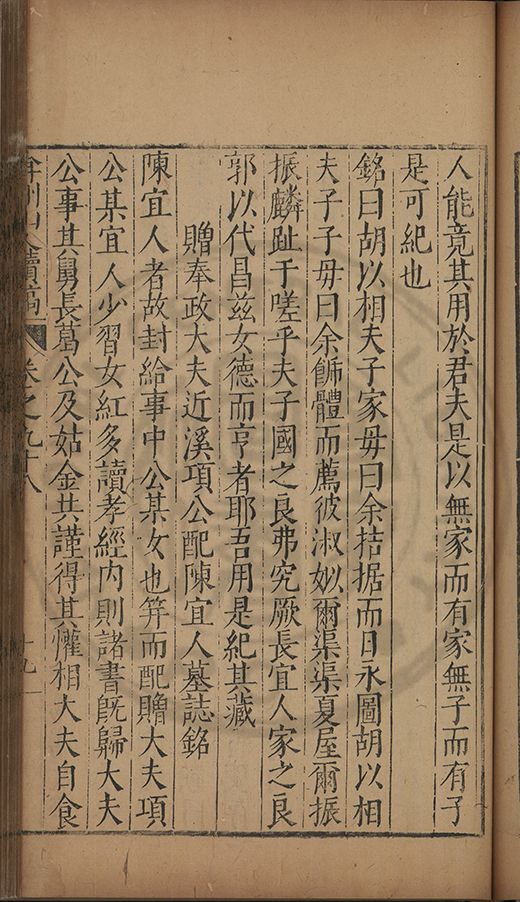 人能竟其用於君夫是以無家而有家無子而有子
是可紀也
銘曰胡以相夫子家毋曰余拮据而日永圖胡以相
夫子子毋曰余飾體而薦彼淑姒爾渠渠夏屋爾振
振麟趾于嗟乎夫子國之良弗究厥長宜人家之良
郭以代昌兹女德而亨者耶吾用是紀其藏
贈奉政大夫近溪項公配陳宜人墓誌銘
陳宜人者故封給事中公某女也笄而配贈大夫項
公某宜人少習女紅多讀孝經內則諸書旣歸大夫
公事其舅長葛公及姑金共謹得其懽相大夫自食
弇州山人續稿 卷之九十八 十九